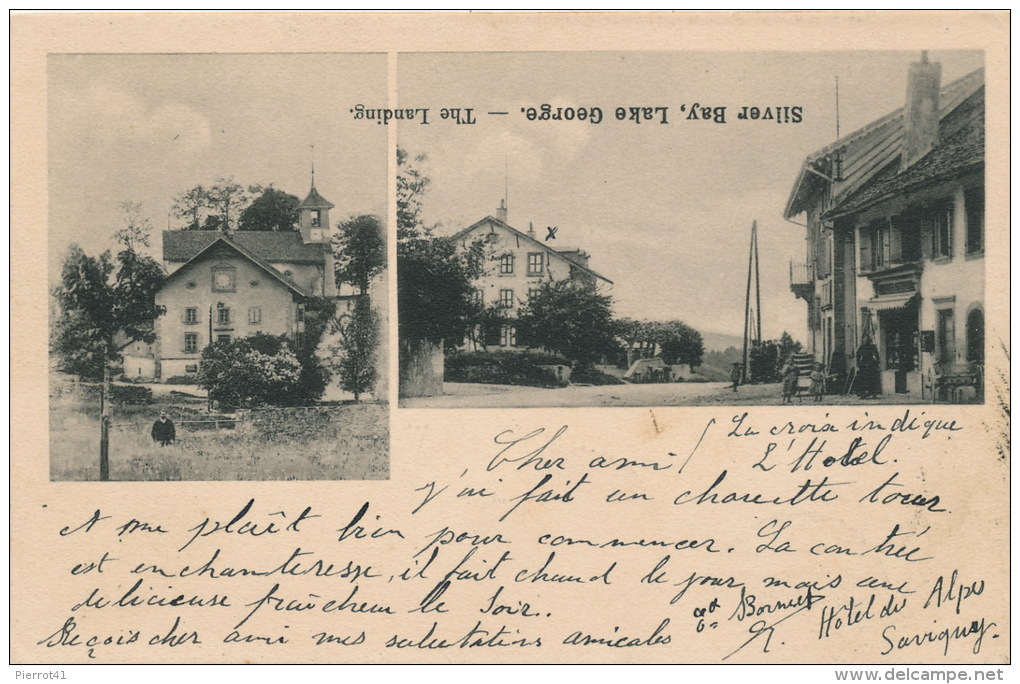 Silver Bay, Lake George. — The Landing.
x
La croix indique
L'Hotel.
Cher ami
J'ai fait un chouette tour.
A me plaît bien pour commencer. La contrée
est enchanteresse, il fait chaud le jour, mais une
delicieuse fraîcheur le soir.
Reçois cher ami mes salutations amicales
Hôtel des Alpes
Savigny.
Pierrot41
delcampe.net